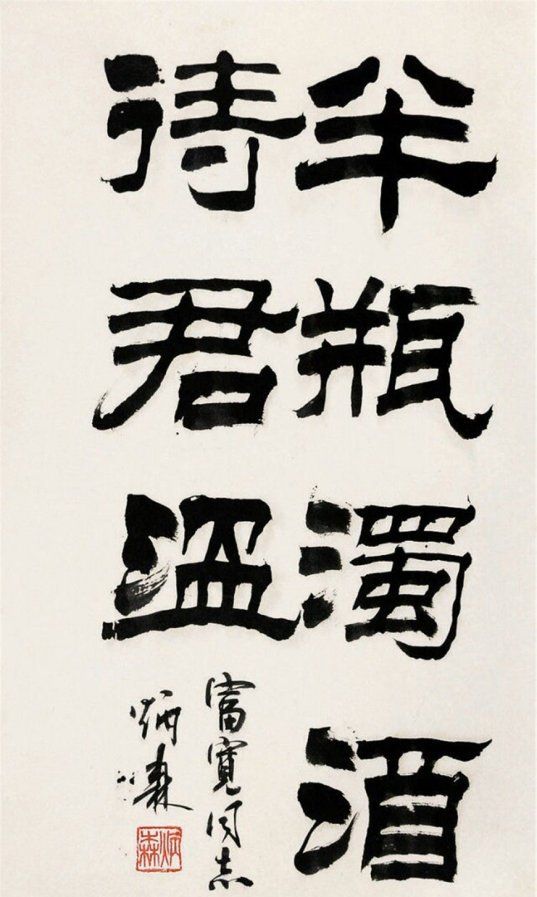 半瓶濁酒
待君溫
富寬同志
炳森
炳森